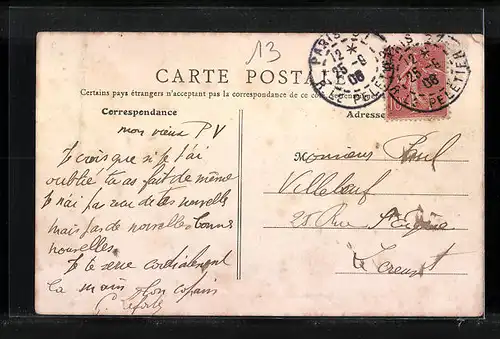 13
PARIS
12 * 25 -6 06
R. LE PELETIER
12 * 25 -6 06
R. LE PELETIER
CARTE POSTALE
Certains pays étrangers n'acceptant pas la correspondance de ce côté
Correspondance
Adresse
mon vieux P V
Je crois que si je t'ai
oublié tu as fait de même
Je n'ai pas eu de tes nouvelle
mais pas de nouvelle bonnes
nouvelles
Je te serre cordialement
la main ton copain
Monsieur Paul
Villebœuf
25 Rue
Le Creusot